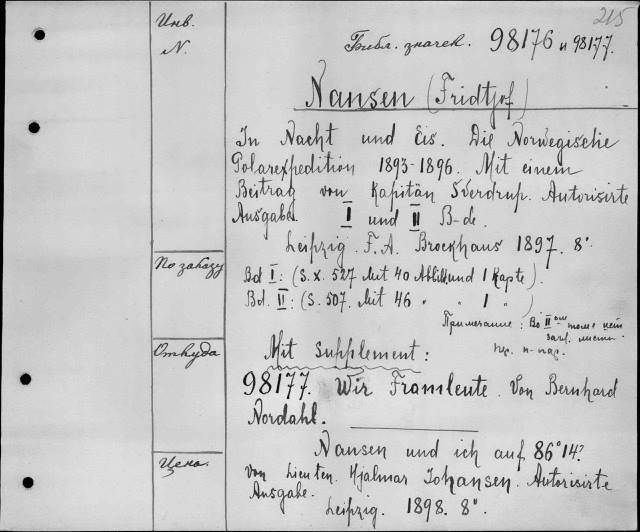 215
Инв.
N.
Библ. значек. 98176 и 98177.
Nansen (Fridtjof)
In Nacht und Eis. Die Norwegische
Polarexpedition 1893-1896. Mit einem
Beitrag von Kapitän Sverdrup. Autorisirte
Ausgabe. I und II B-de.
Leipzig. F. A. Brockhaus 1897. 8°.
По заказу
Bd I: (S. X. 527 Mit 40 Abbild und 1 Karte).
Bd. II: (S. 507. Mit 46 " " 1 " )
Примечание: Во II ом томе нет
загл. листа.
Откуда
Mit Supplement:
98177. Wir Framleute. Von Bernhard
Nordahl.
Nansen und ich auf 86°14'.
Цена.
von Lieuten. Hjalmar Johansen. Autorisirte
Ausgabe.
Leipzig. 1898. 8°.